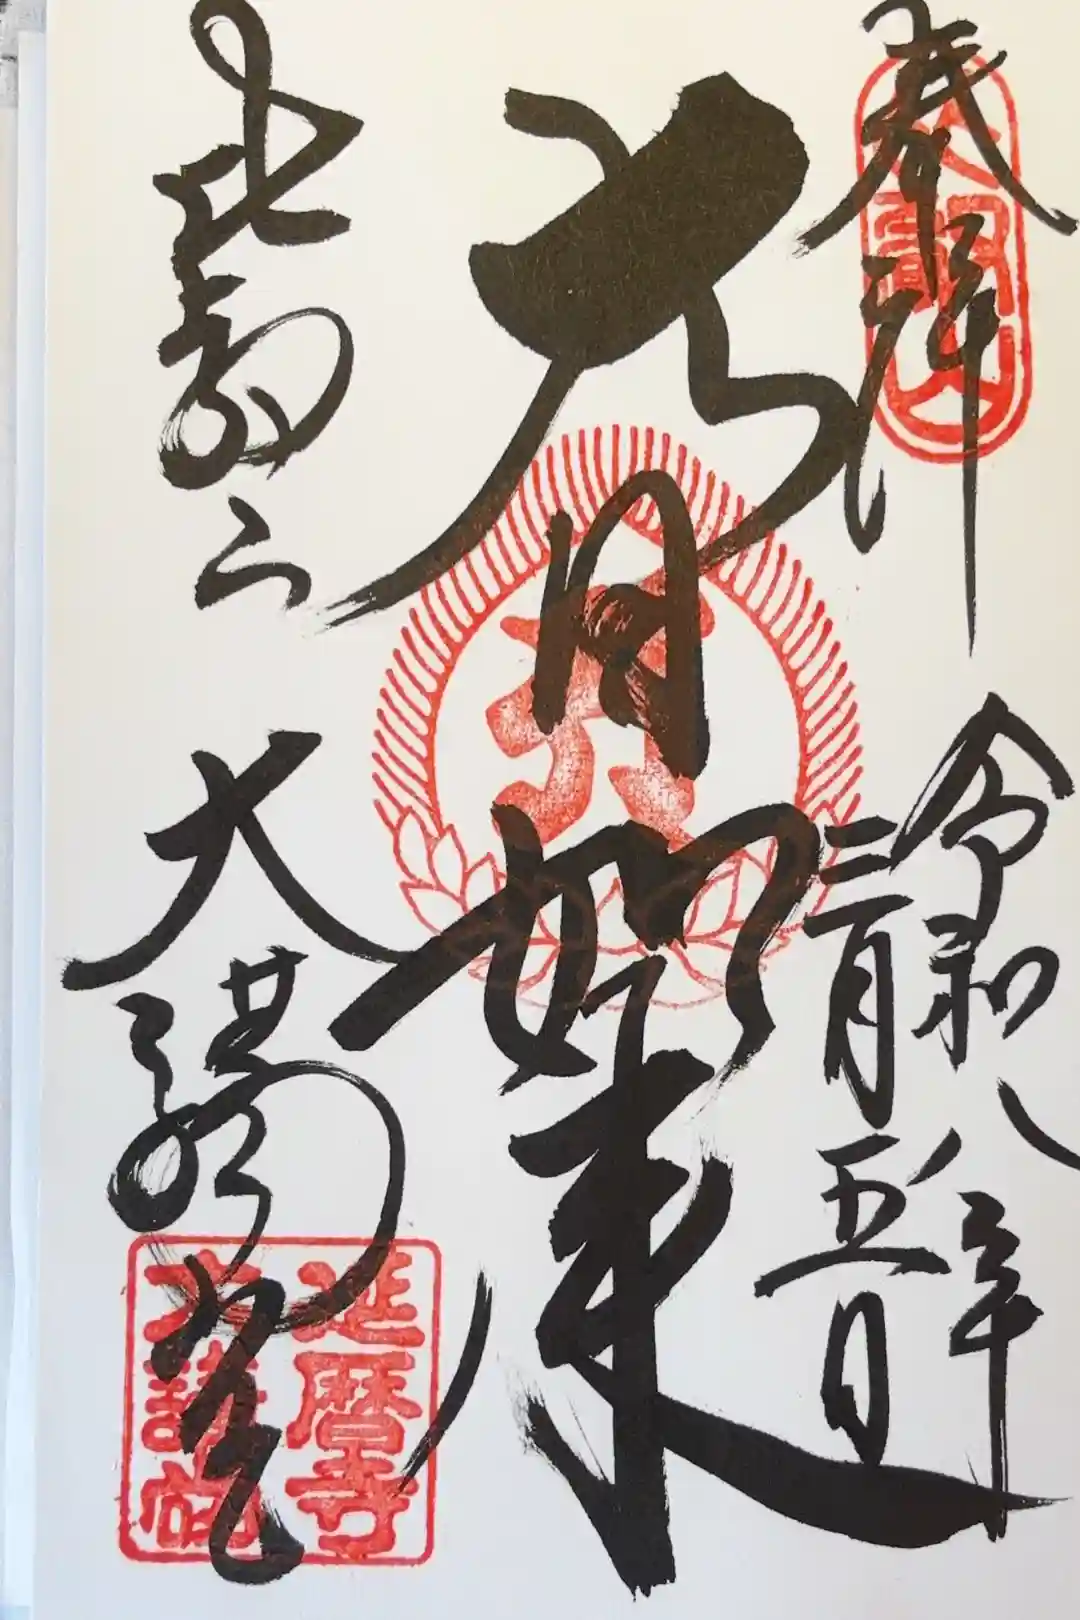 奉拝
令和八年
二月五日
大日如来
比叡山
大講堂
延暦寺
大講堂